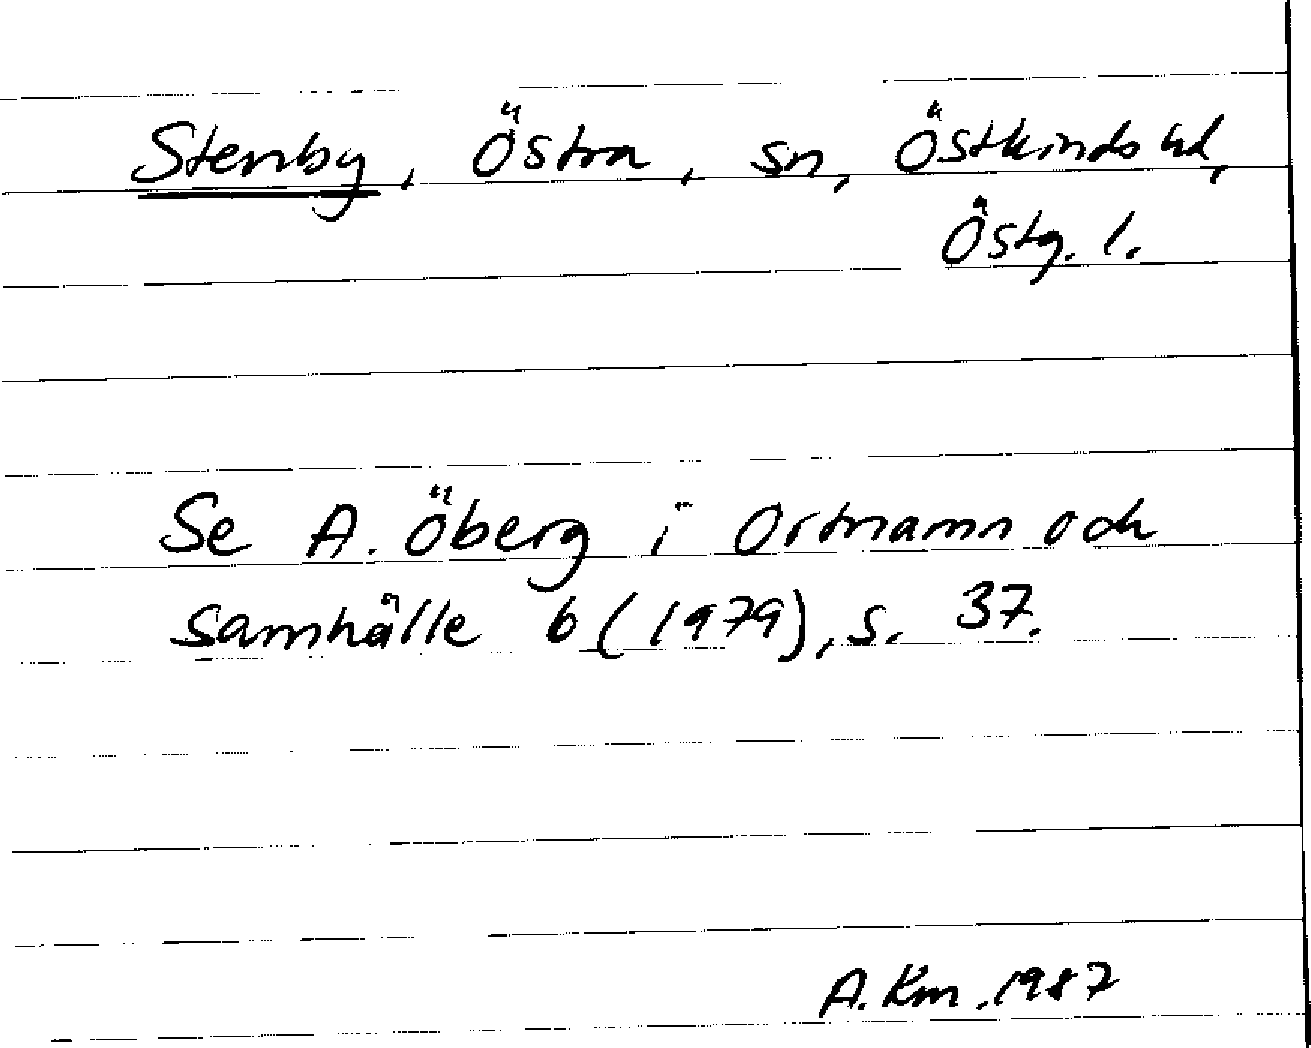 Stenby, Östra, sn, Östkinds hd,
Östg. l.
Se A. Öberg i Ortnamn och
samhälle 6 (1979), s. 37.
A. Km. 1987